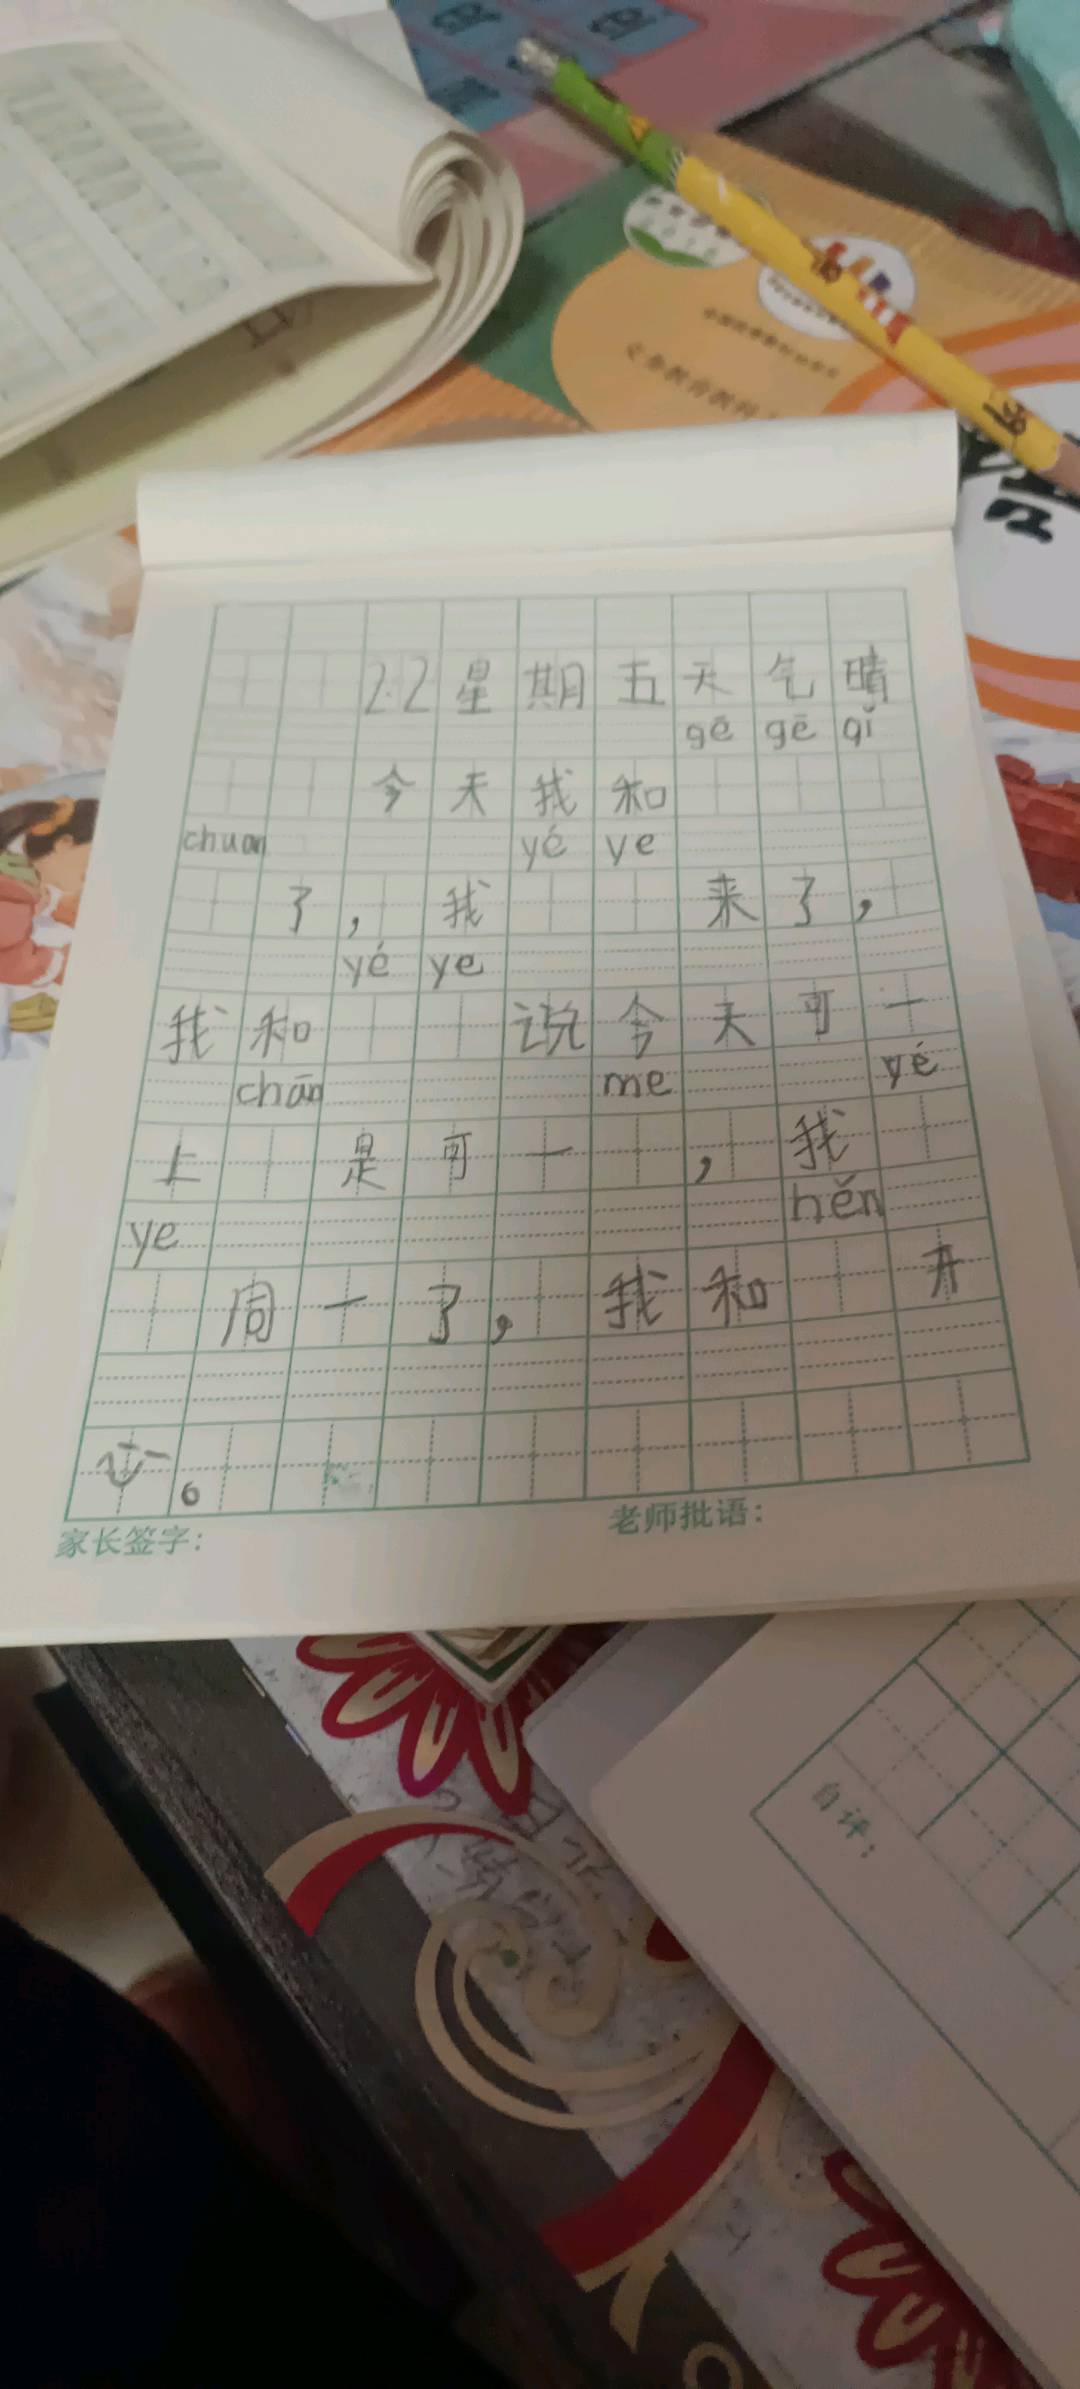 22星期五天气晴
gē gē qǐ
今天我和
chuan yé ye
了，我来了，
yé ye
我和说今天可一
chān me yé
上是可一，我
ye hěn
周一了，我和开
心。
家长签字：
老师批语：
自评：
义务教育教科